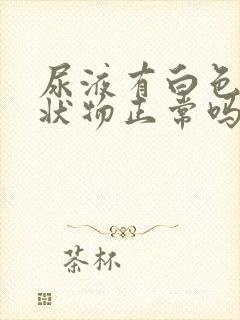 尿液有白色
状物正常吗
茶杯